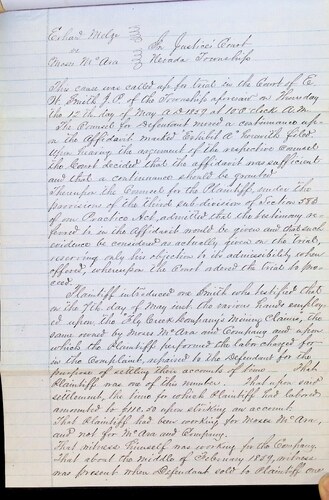 Erhad Melge
vs
Moses McAra
In Justice's Court
Nevada Township
This case was called up for trial in the Court of E.
W. Smith J.P. of the Township aforesaid on Thursday
the 12th day of May A.D. 1859 at 10 O'clock A.M.
The Counsel for Defendant moved a continuance up-
on the Affidavit marked Exhibit A herewith filed.
Upon hearing the argument of the respective Counsel
the Court decided that the affidavit was sufficient
and that a continuance should be granted.
Thereupon the Counsel for the Plaintiff, under the
provisions of the third sub-division of Section 580
of our Practice Act, admitted that the testimony re-
ferred to in the Affidavit would be given and that such
evidence be considered as actually given on the trial,
reserving only his objection to its admissibility when
offered, whereupon the Court ordered the trial to pro-
ceed.
Plaintiff introduced one Smith who testified that
on the 7th day of May inst. the various hands employ-
ed upon the Fly Creek Company's Mining Claims, the
same owned by Moses McAra and Company and upon
which the Plaintiff performed the labor charged for
in the Complaint, repaired to the Defendant for the
purpose of settling their accounts of
That
Plaintiff was one of this number. That upon said
settlement, the time for which Plaintiff had labored
amounted to $110.50 upon striking an account.
That Plaintiff had been working for Moses McAra,
and not for McAra and Company.
That witness himself was working for the Company.
That about the middle of February 1859, witness
was present when Defendant sold to Plaintiff one